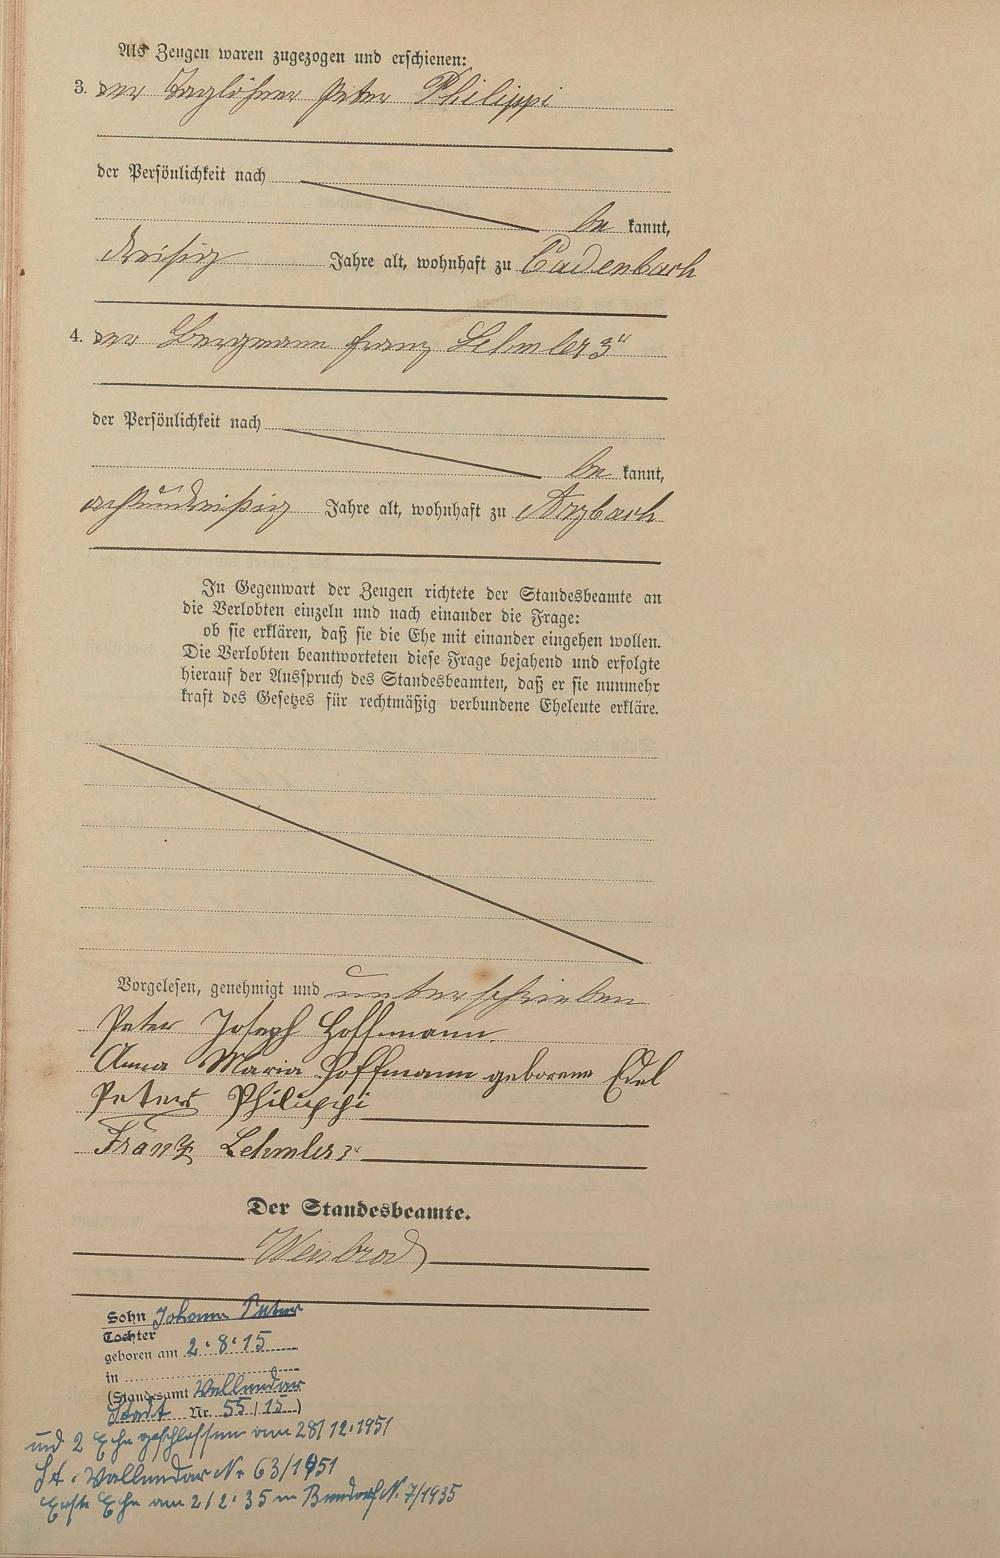 Als Zeugen waren zugezogen und erschienen:
3. der Taglöhner Peter Philippi
der Persönlichkeit nach
be kannt,
dreißig Jahre alt, wohnhaft zu Cadenbach
4. der Bergmann Franz Lehmler 3ᵗ
der Persönlichkeit nach
be kannt,
achtunddreißig Jahre alt, wohnhaft zu Arzbach
In Gegenwart der Zeugen richtete der Standesbeamte an
die Verlobten einzeln und nach einander die Frage:
ob sie erklären, daß sie die Ehe mit einander eingehen wollen.
Die Verlobten beantworteten diese Frage bejahend und erfolgte
hierauf der Ausspruch des Standesbeamten, daß er sie nunmehr
kraft des Gesetzes für rechtmäßig verbundene Eheleute erkläre.
Vorgelesen, genehmigt und unterschrieben
Peter Joseph Hoffmann.
Anna Maria Hoffmann geborene Edel
Peter Philippi
Franz Lehmler 3ᵗ
Der Standesbeamte.
Weisbrod
Sohn Johann Peter
Tochter
geboren am 2.8.15
in
(Standesamt Vallendar
Stadt Nr. 55/15)
und 2 Ehe geschlossen am 28/12.1951
St. Vallendar Nr 63/1951
Erste Ehe am 2/2.35 in Bendorf N. 7/1935